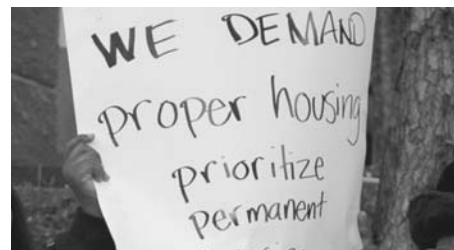 WE DEMAND
proper housing
prioritize
permanent